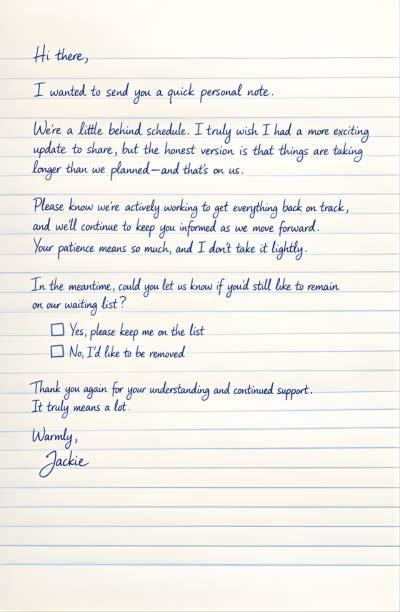 Hi there,
I wanted to send you a quick personal note.
We're a little behind schedule. I truly wish I had a more exciting
update to share, but the honest version is that things are taking
longer than we planned—and that's on us.
Please know we're actively working to get everything back on track,
and we'll continue to keep you informed as we move forward.
Your patience means so much, and I don't take it lightly.
In the meantime, could you let us know if you'd still like to remain
on our waiting list?
☐ Yes, please keep me on the list
☐ No, I'd like to be removed
Thank you again for your understanding and continued support.
It truly means a lot.
Warmly,
Jackie